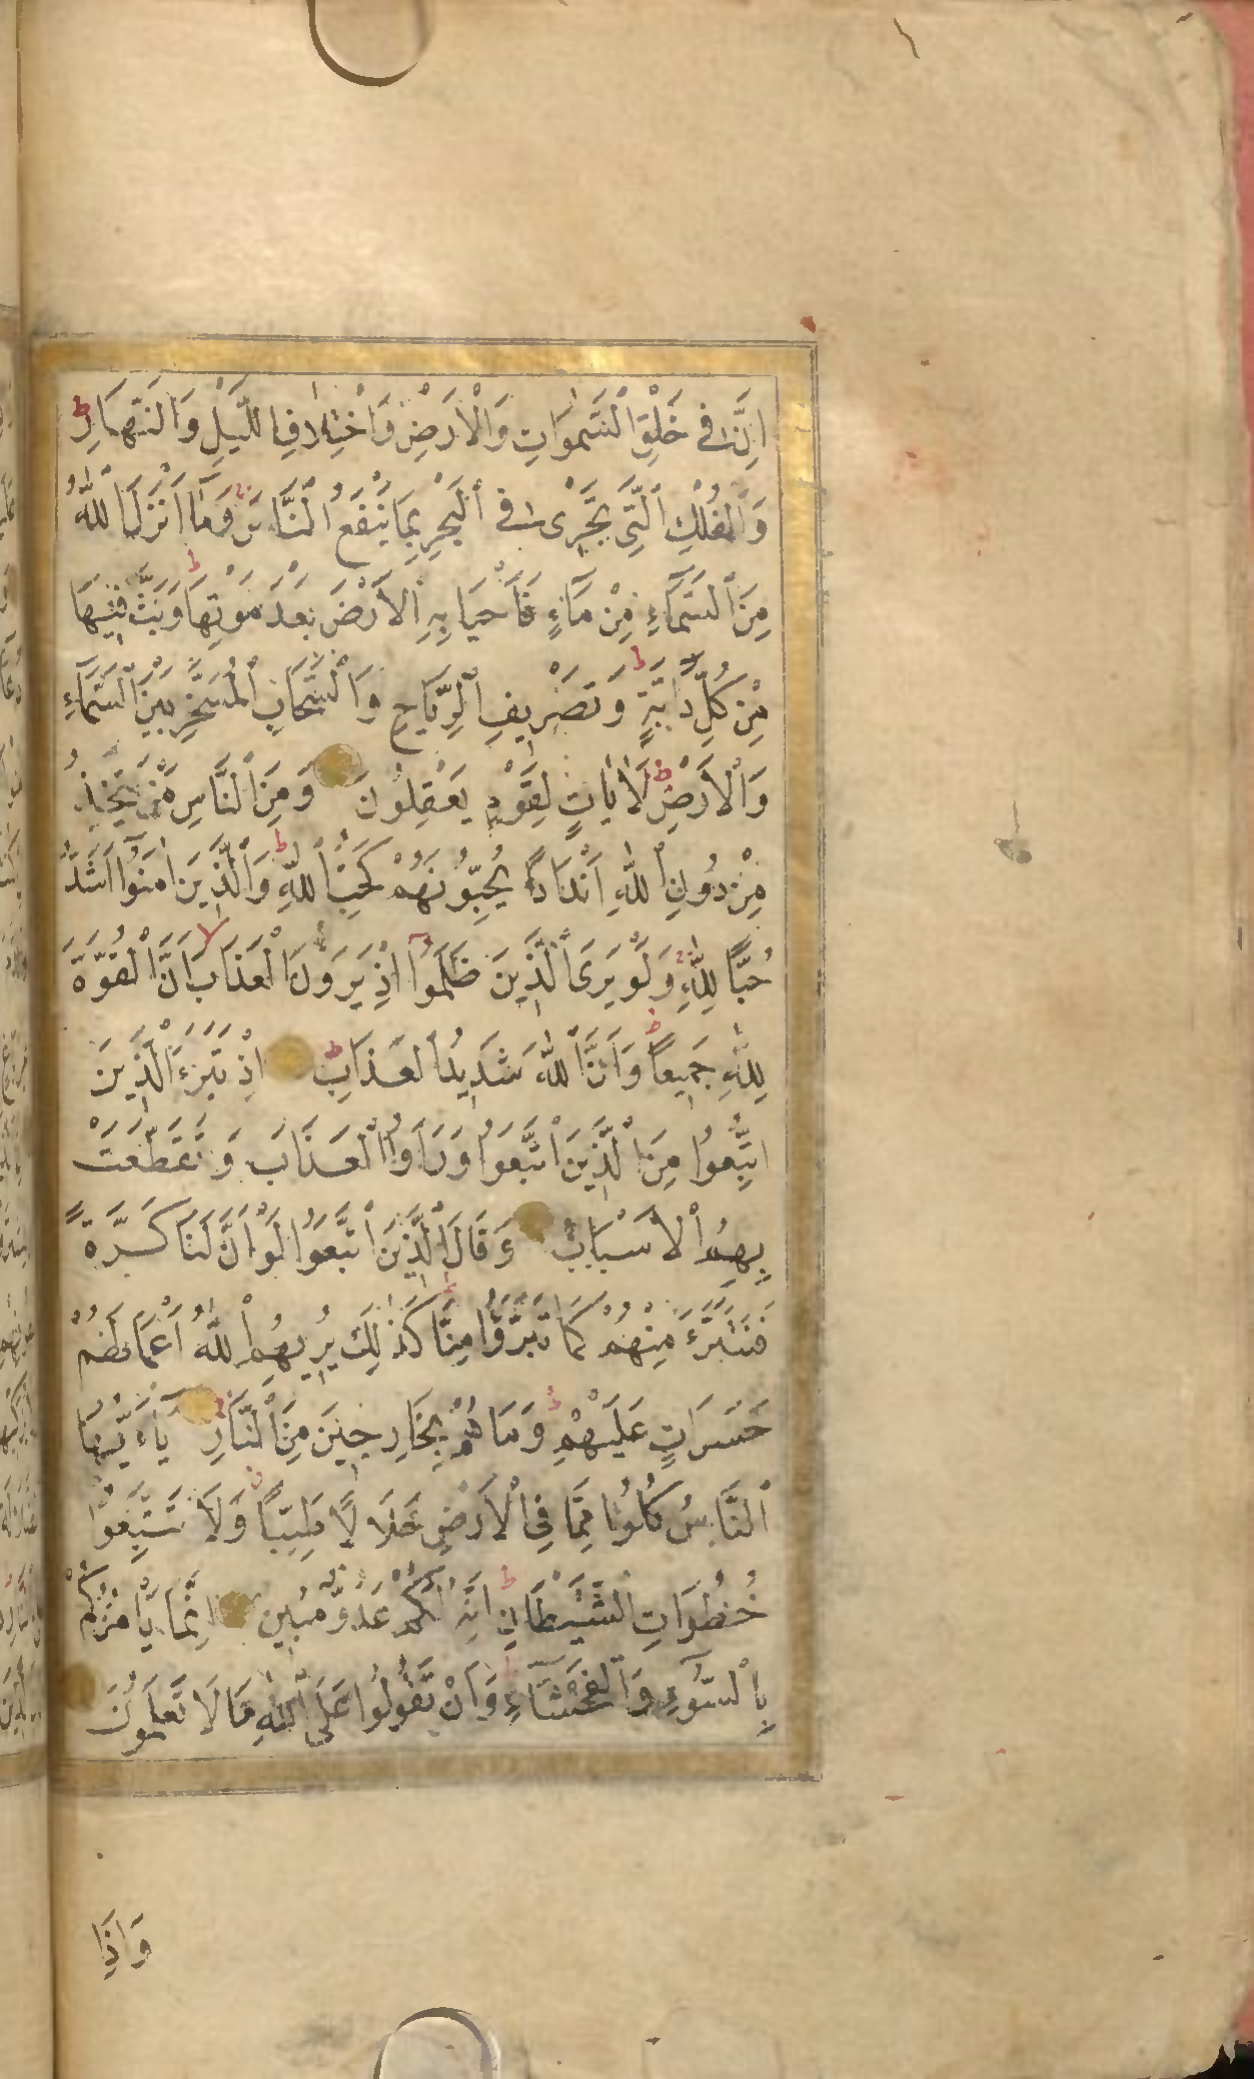 اِنَّ فِى خَلْقِ السَّمٰوَاتِ وَالْاَرْضِ وَاخْتِلَافِ الَّيْلِ وَالنَّهَارِ ط
وَالْفُلْكِ الَّتِى تَجْرِى فِى الْبَحْرِ بِمَا يَنْفَعُ النَّاسَ وَمَٓا اَنْزَلَ اللّٰهُ
مِنَ السَّمَٓاءِ مِنْ مَٓاءٍ فَاَحْيَا بِهِ الْاَرْضَ بَعْدَ مَوْتِهَا وَبَثَّ فِيهَا
مِنْ كُلِّ دَٓابَّةٍ ط وَتَصْرِيفِ الرِّيَاحِ وَالسَّحَابِ الْمُسَخَّرِ بَيْنَ السَّمَٓاءِ
وَالْاَرْضِ ط لَاٰيَاتٍ لِقَوْمٍ يَعْقِلُونَ وَمِنَ النَّاسِ مَنْ يَتَّخِذُ
مِنْ دُونِ اللّٰهِ اَنْدَادًا يُحِبُّونَهُمْ كَحُبِّ اللّٰهِ ط وَالَّذِينَ اٰمَنُٓوا اَشَدُّ
حُبًّا لِلّٰهِ وَلَوْ يَرَى الَّذِينَ ظَلَمُٓوا اِذْ يَرَوْنَ الْعَذَابَ لا اَنَّ الْقُوَّةَ
لِلّٰهِ جَمِيعًا ط وَاَنَّ اللّٰهَ شَدِيدُ الْعَذَابِ ط اِذْ تَبَرَّءَ الَّذِينَ
اتُّبِعُوا مِنَ الَّذِينَ اتَّبَعُوا وَرَاَوُا الْعَذَابَ وَتَقَطَّعَتْ
بِهِمُ الْاَسْبَابُ وَقَالَ الَّذِينَ اتَّبَعُوا لَوْ اَنَّ لَنَا كَرَّةً
فَنَتَبَرَّءَ مِنْهُمْ كَمَا تَبَرَّؤُا مِنَّا ط كَذٰلِكَ يُرِيهِمُ اللّٰهُ اَعْمَالَهُمْ
حَسَرَاتٍ عَلَيْهِمْ ط وَمَا هُمْ بِخَارِجِينَ مِنَ النَّارِ يَٓاءَيُّهَا
النَّاسُ كُلُوا مِمَّا فِى الْاَرْضِ حَلَالًا طَيِّبًا وَلَا تَتَّبِعُوا
خُطُوَاتِ الشَّيْطَانِ ط اِنَّهُ لَكُمْ عَدُوٌّ مُبِين اِنَّمَا يَاْمُرُكُمْ
بِالسُّٓوءِ وَالْفَحْشَٓاءِ وَاَنْ تَقُولُوا عَلَى اللّٰهِ مَا لَا تَعْلَمُونَ
وَاِذَا